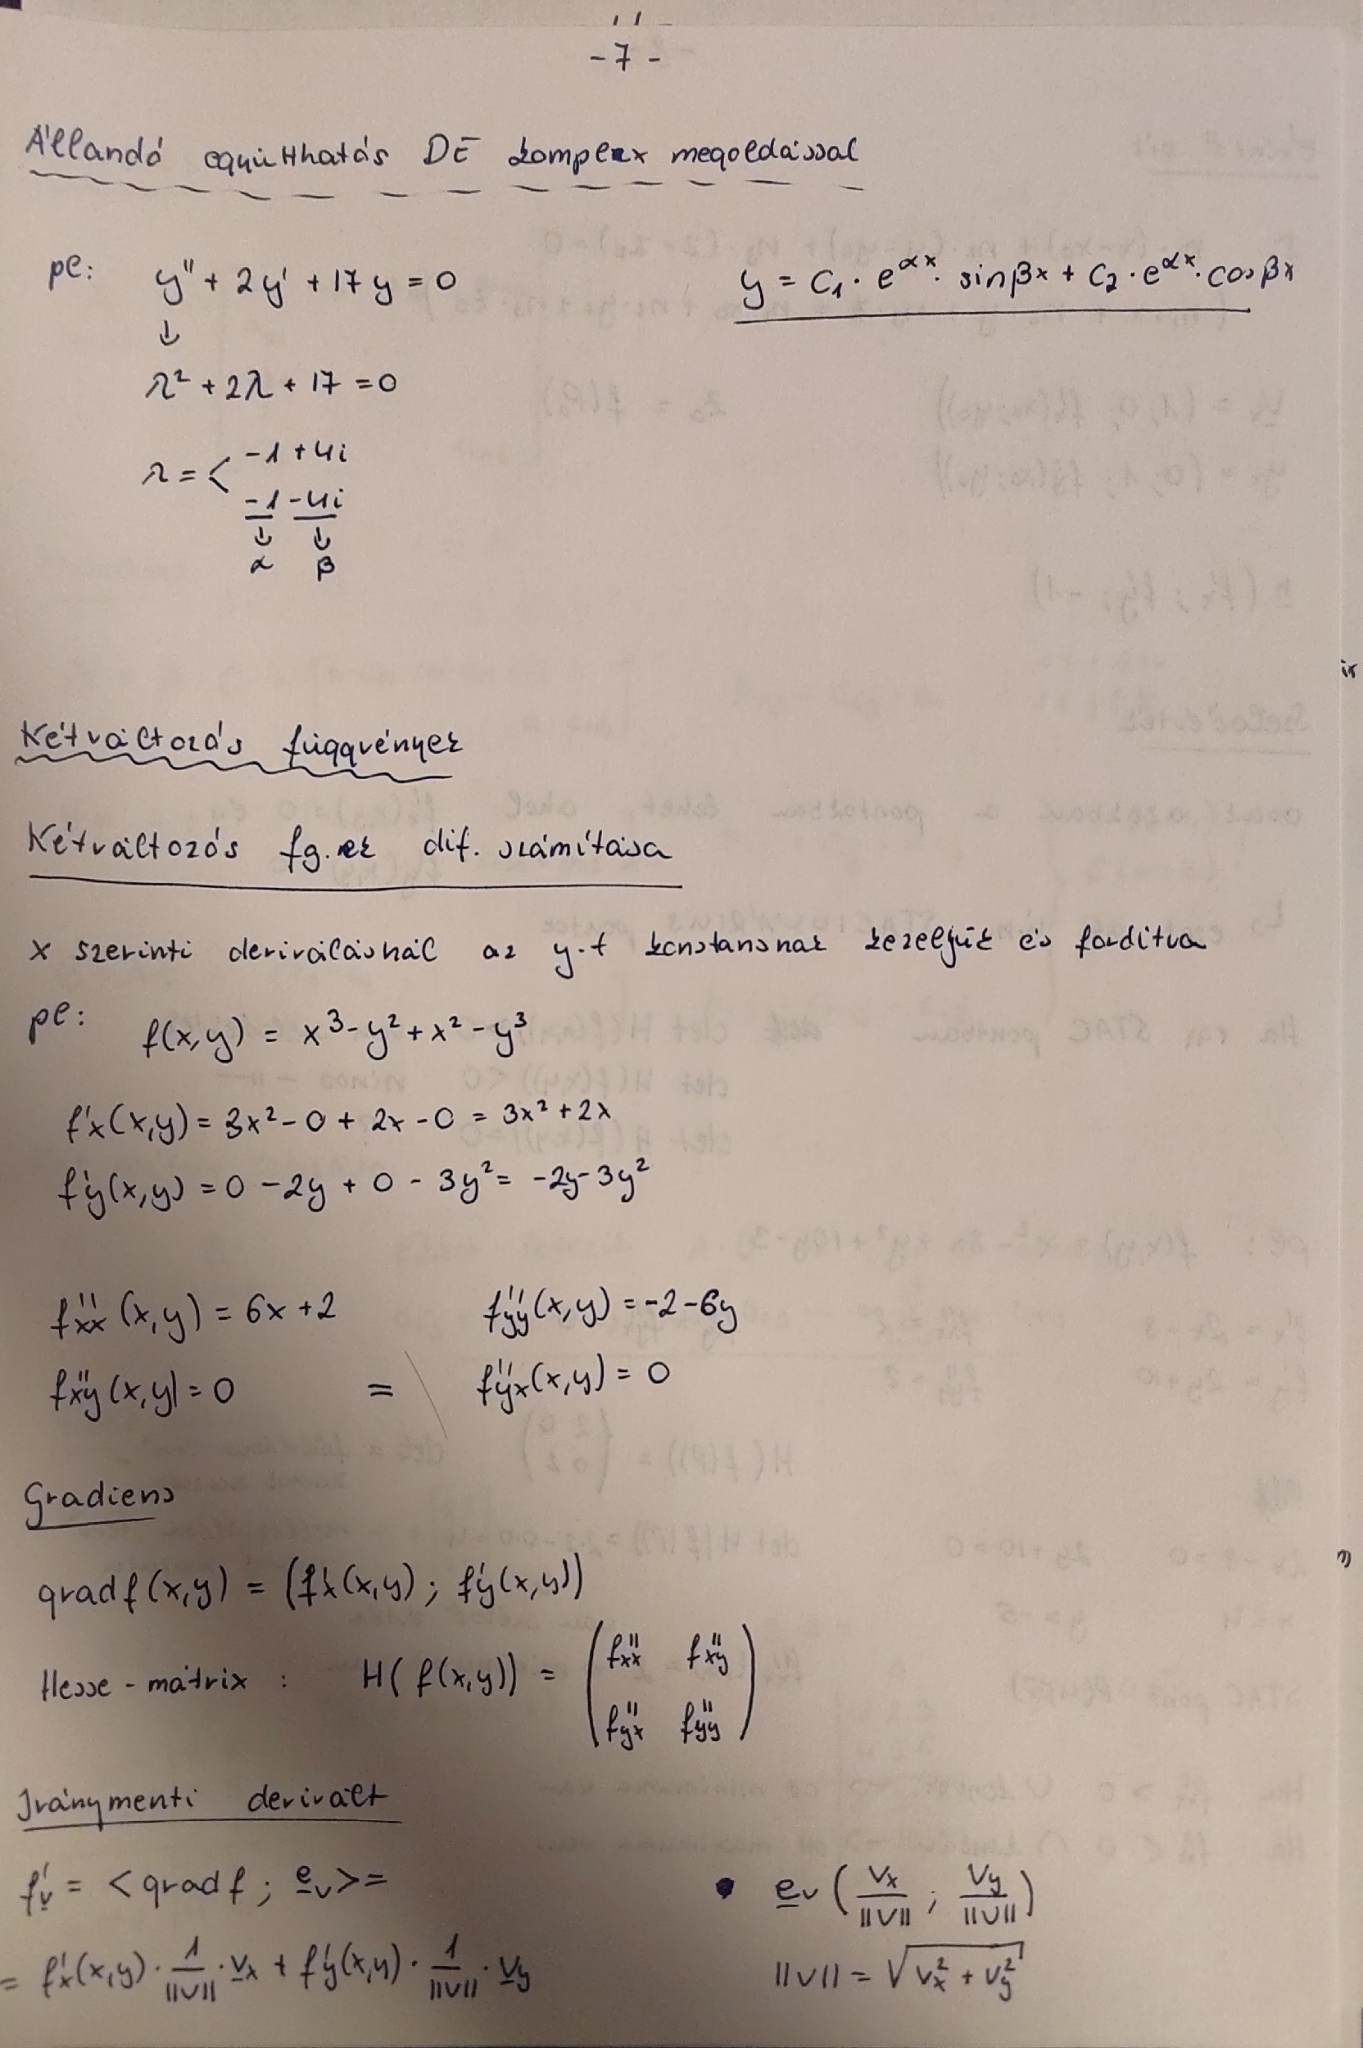 -7-
Állandó együtthatós DE komplex megoldással
pl: y'' + 2y' + 17y = 0
y = C₁ · e^αx · sinβx + C₂ · e^αx · cosβx
↓
λ² + 2λ + 17 = 0
λ = < -1 + 4i
-1 - 4i
↓ ↓
α β
Kétváltozós függvények
Kétváltozós fg.ek dif. számítása
x szerinti deriválásnál az y-t konstansnak kezeljük és fordítva
pl: f(x,y) = x³ - y² + x² - y³
f'x(x,y) = 3x² - 0 + 2x - 0 = 3x² + 2x
f'y(x,y) = 0 - 2y + 0 - 3y² = -2y - 3y²
f''xx(x,y) = 6x + 2 f''yy(x,y) = -2 - 6y
f''xy(x,y) = 0 = f''yx(x,y) = 0
Gradiens
gradf(x,y) = (f'x(x,y) ; f'y(x,y))
Hesse - mátrix : H( f(x,y)) = ( f''xx f''xy
f''yx f''yy )
Iránymenti derivált
f'v = < grad f ; ev > =
= f'x(x,y) · 1/||v|| · vx + f'y(x,y) · 1/||v|| · vy
• ev ( vx/||v|| ; vy/||v|| )
||v|| = √(vx² + vy²)